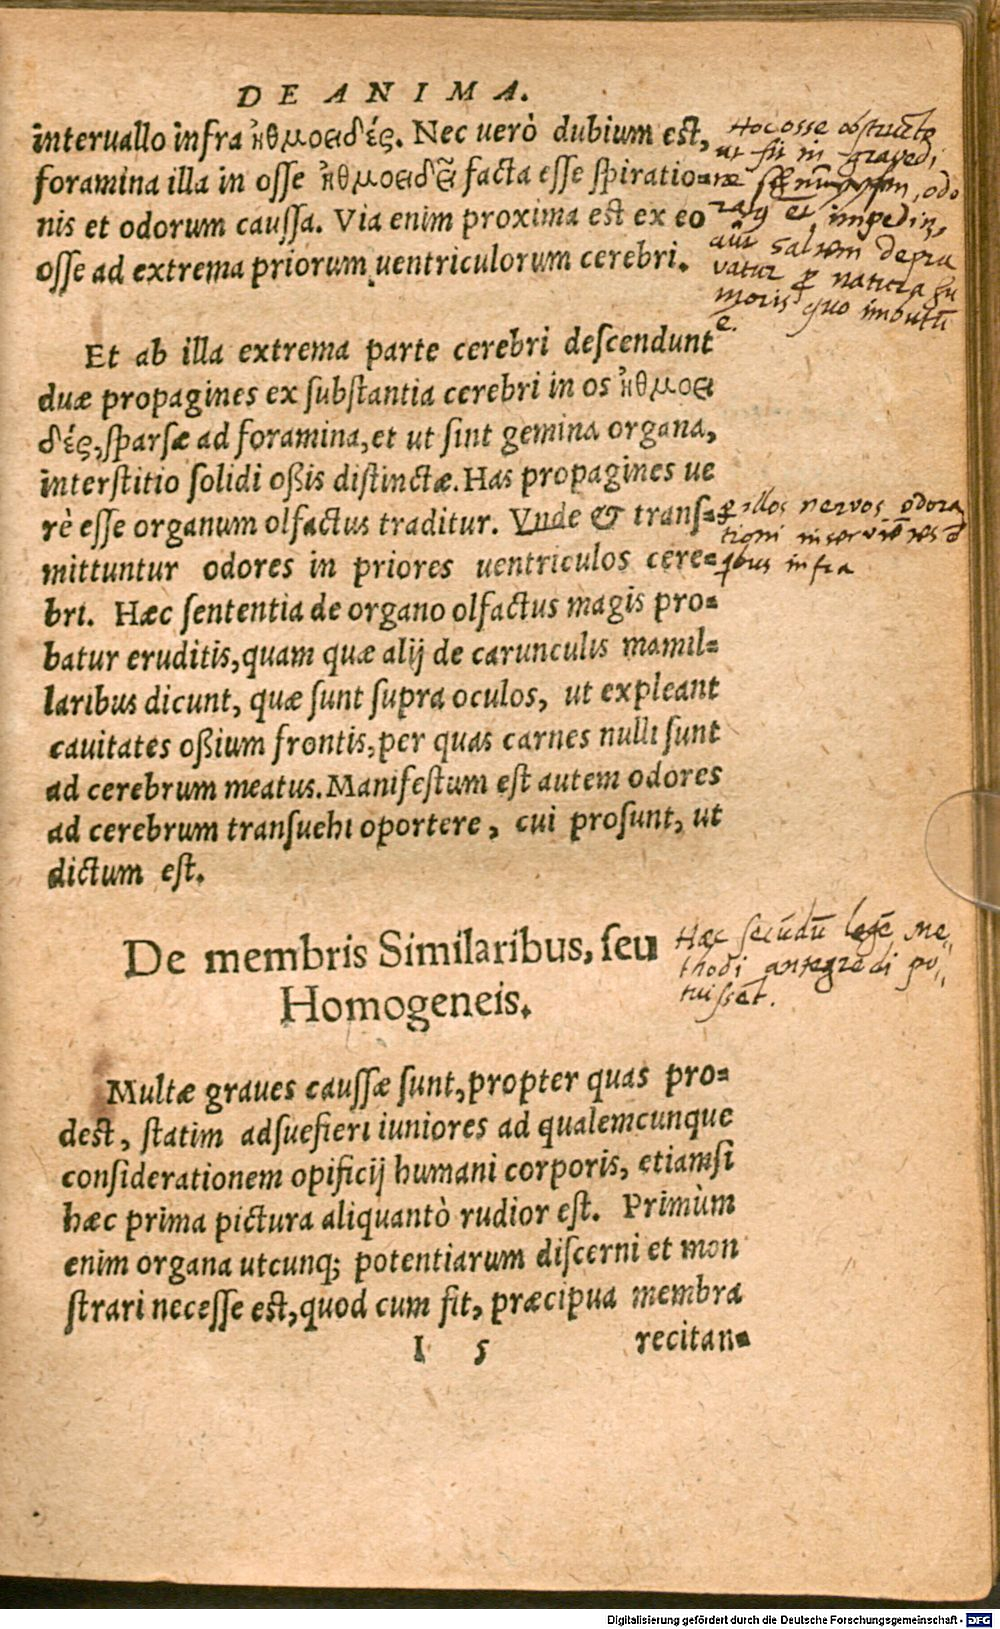 DE ANIMA.
interuallo infra ἠθμοειδές. Nec uerò dubium est,
foramina illa in osse ἠθμοειδεῖ facta esse spiratio=
nis et odorum caussa. Via enim proxima est ex eo
osse ad extrema priorum uentriculorum cerebri.
Hoc osse obstructo
ut fit in graved
odo
et impedir,
aut saltem depra
vatur natura hu
moris quo imbutū
e.
Et ab illa extrema parte cerebri descendunt
duæ propagines ex substantia cerebri in os ἠθμοει
δές, sparsæ ad foramina, et ut sint gemina organa,
interstitio solidi oßis distinctæ. Has propagines ue
rè esse organum olfactus traditur. Vnde & trans=
mittuntur odores in priores uentriculos cere=
bri. Hæc sententia de organo olfactus magis pro=
batur eruditis, quam quæ alij de carunculis mamil=
laribus dicunt, quæ sunt supra oculos, ut expleant
cauitates oßium frontis, per quas carnes nulli sunt
ad cerebrum meatus. Manifestum est autem odores
ad cerebrum transuehi oportere, cui prosunt, ut
dictum est.
illos nervos odora
tioni
infra
De membris Similaribus, seu
Homogeneis.
Hæc secūdū legē me
thodi antegredi po
tuisset.
Multæ graues caussæ sunt, propter quas pro=
dest, statim adsuefieri iuniores ad qualemcunque
considerationem opificij humani corporis, etiamsi
hæc prima pictura aliquantò rudior est. Primùm
enim organa utcunq; potentiarum discerni et mon
strari necesse est, quod cum fit, præcipua membra
I 5 recitan=
Digitalisierung gefördert durch die Deutsche Forschungsgemeinschaft - DFG